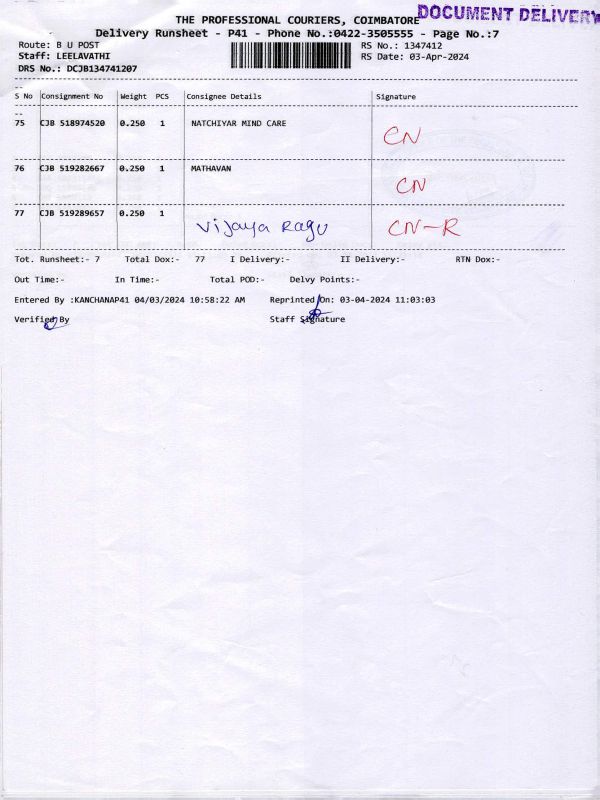 THE PROFESSIONAL COURIERS, COIMBATORE DOCUMENT DELIVERY
Delivery Runsheet - P41 - Phone No.:0422-3505555 - Page No.:7
Route: B U POST RS No.: 1347412
Staff: LEELAVATHI RS Date: 03-Apr-2024
DRS No.: DCJB134741207
S No Consignment No Weight PCS Consignee Details Signature
75 CJB 518974520 0.250 1 NATCHIYAR MIND CARE CN
76 CJB 519282667 0.250 1 MATHAVAN CN
77 CJB 519289657 0.250 1 Vijaya Ragu CN-R
Tot. Runsheet:- 7 Total Dox:- 77 I Delivery:- II Delivery:- RTN Dox:-
Out Time:- In Time:- Total POD:- Delvy Points:-
Entered By :KANCHANAP41 04/03/2024 10:58:22 AM Reprinted On: 03-04-2024 11:03:03
Verified By Staff Signature